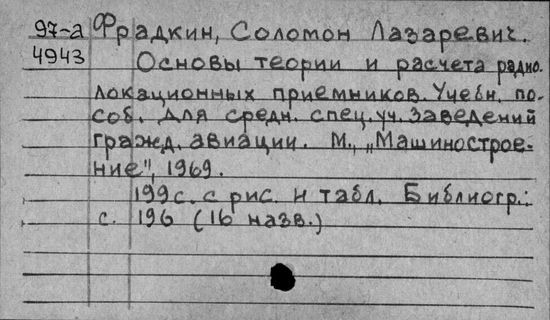 97-а Фрадкин, Соломон Лазаревич.
4943 Основы теории и расчета радио-
локационных приемников. Учебн. по-
соб. для средн. спец. уч. заведений
гражд. авиации. М., „Машинострое-
ние", 1969.
199 с. с рис. и табл. Библиогр.:
с. 196 (16 назв.)